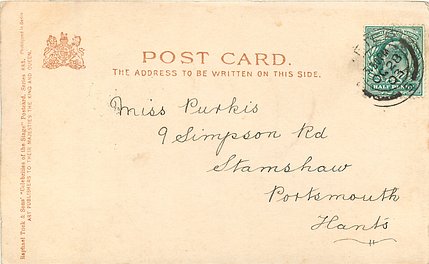 POST CARD.
THE ADDRESS TO BE WRITTEN ON THIS SIDE.
Miss Purkis
9 Simpson Rd
Stamshaw
Portsmouth
Hants
HALF PENNY
Raphael Tuck & Sons' "Celebrities of the Stage" Postcard, Series
ART PUBLISHERS TO THEIR MAJESTIES THE KING AND QUEEN.